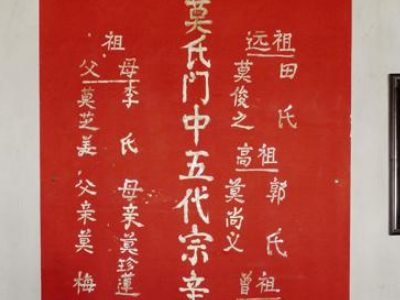 莫氏门中五代宗亲
远祖
田氏
莫俊之
高祖
郭氏
莫尚义
曾祖
祖
父母
李氏
莫芝美
母亲莫珍莲
父亲莫梅